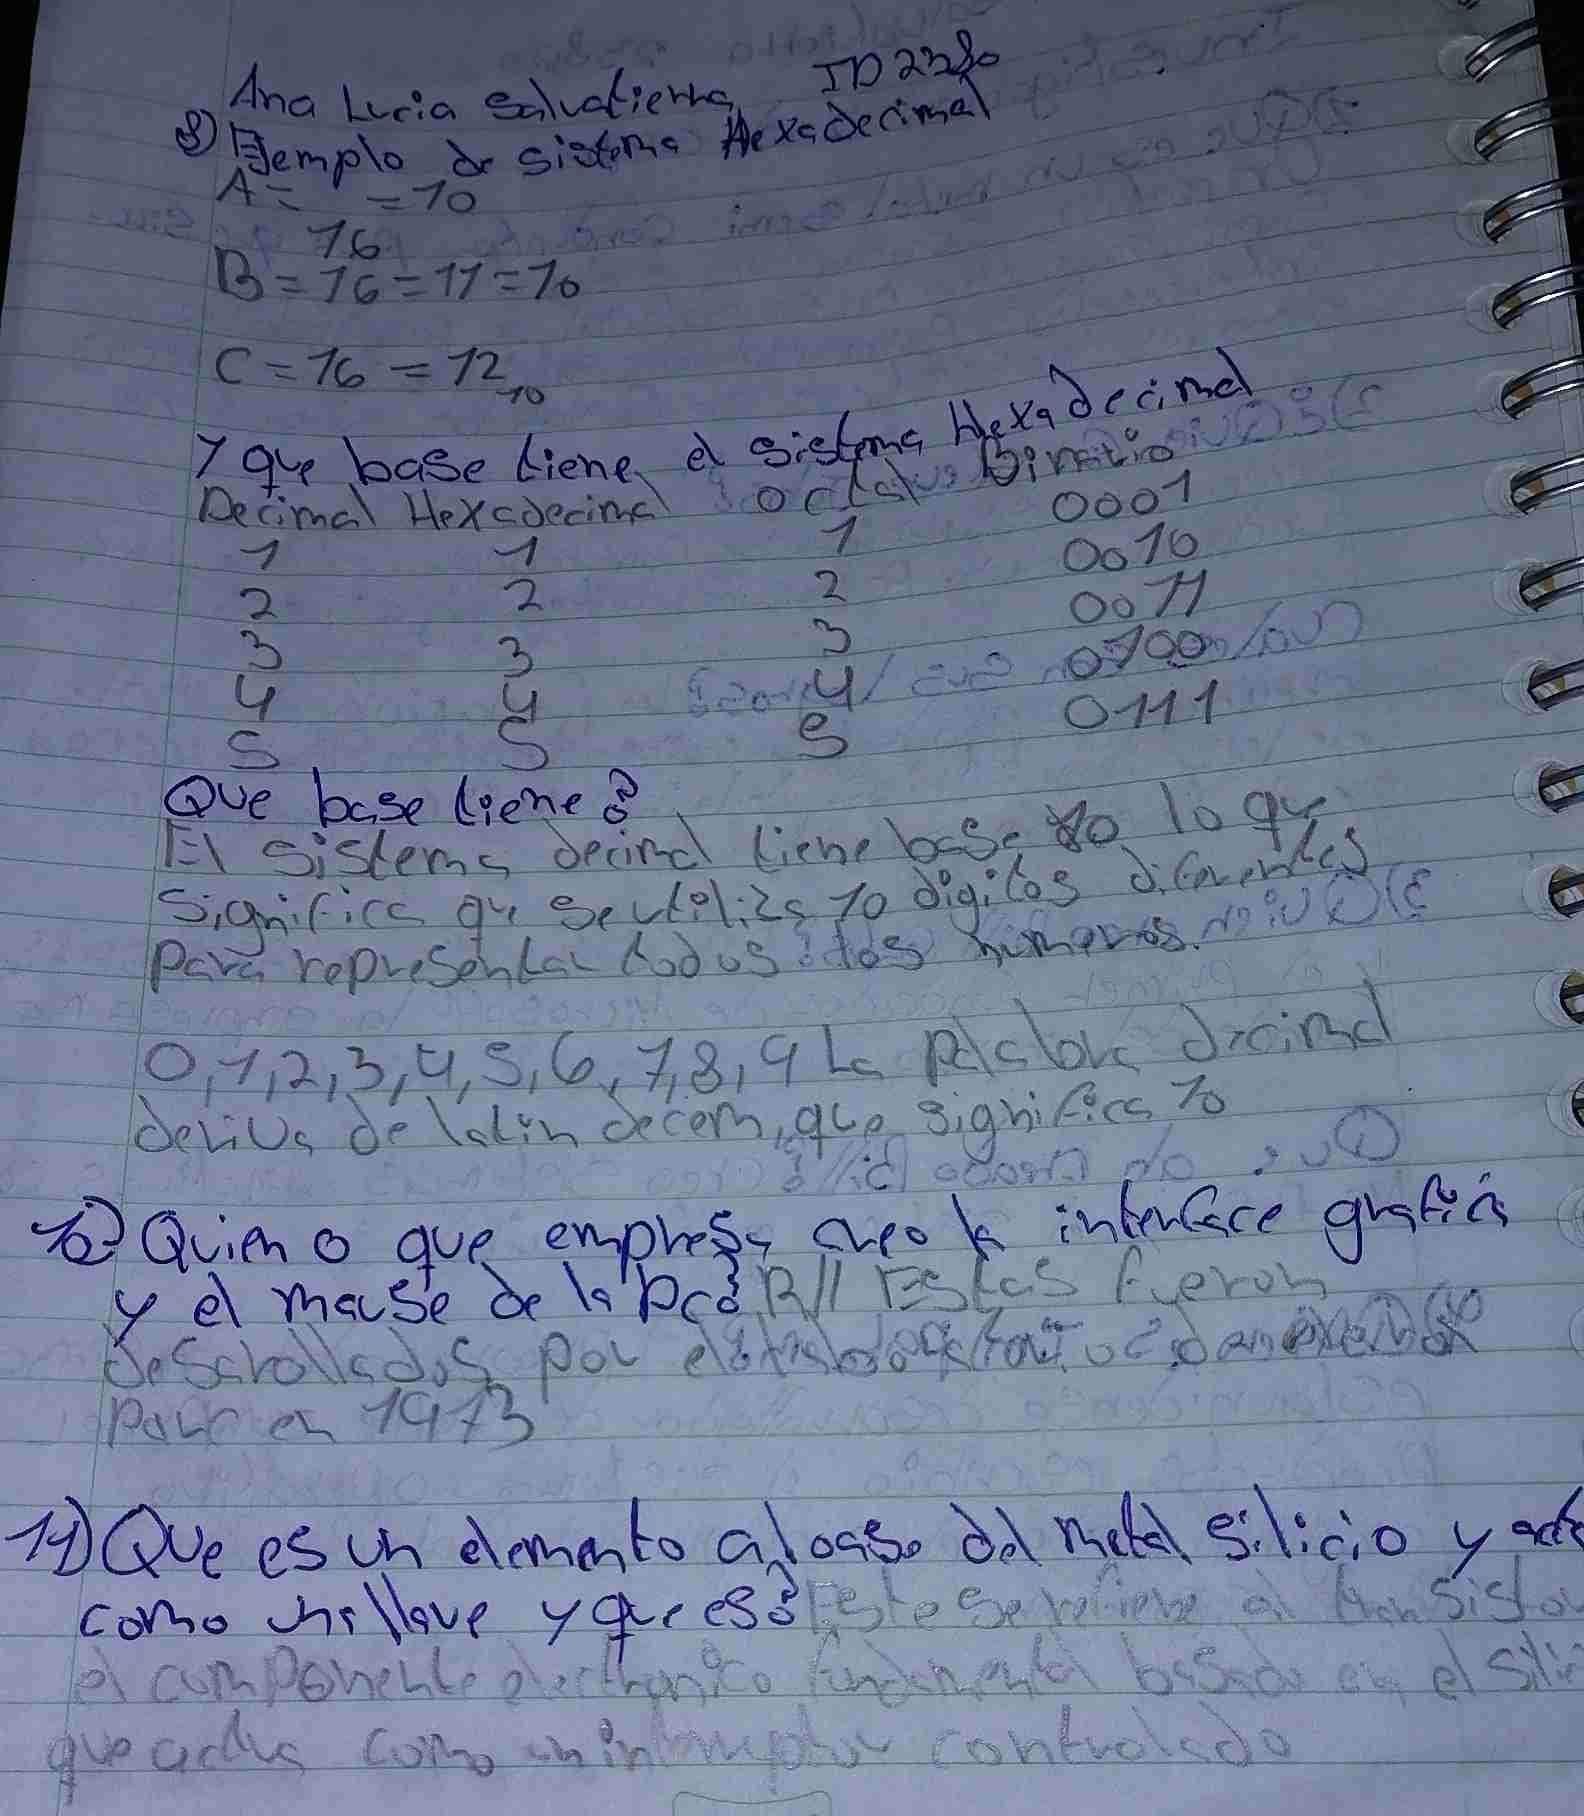 Ana Lucia Salvatierra ID 2280
8) Ejemplo de sistema Hexadecimal
A= =10
16
B = 16 = 11 = 10
C = 16 = 12 10
Y que base tiene el sistema Hexadecimal
Decimal Hexadecimal octal Binario
1 1 1 0001
2 2 2 0010
3 3 3 0011
4 4 4 0100
5 5 5 0111
Que base tiene?
El sistema decimal tiene base 10 lo que
significa que se utiliza 10 digitos diferentes
para representar todos los numeros.
0,1,2,3,4,5,6,7,8,9 La palabra decimal
deriva de latin decem, que significa 10
10) Quien o que empresa creo la interface grafica
y el mause de la pc? R// Estas fueron
desarollados por el
Parc en 1973
11) Que es un elemento a base del metal silicio y
como una llave y que es? Este se refiere al transistor
el componente electronico fundamental basado en el
que actua como un interruptor controlado